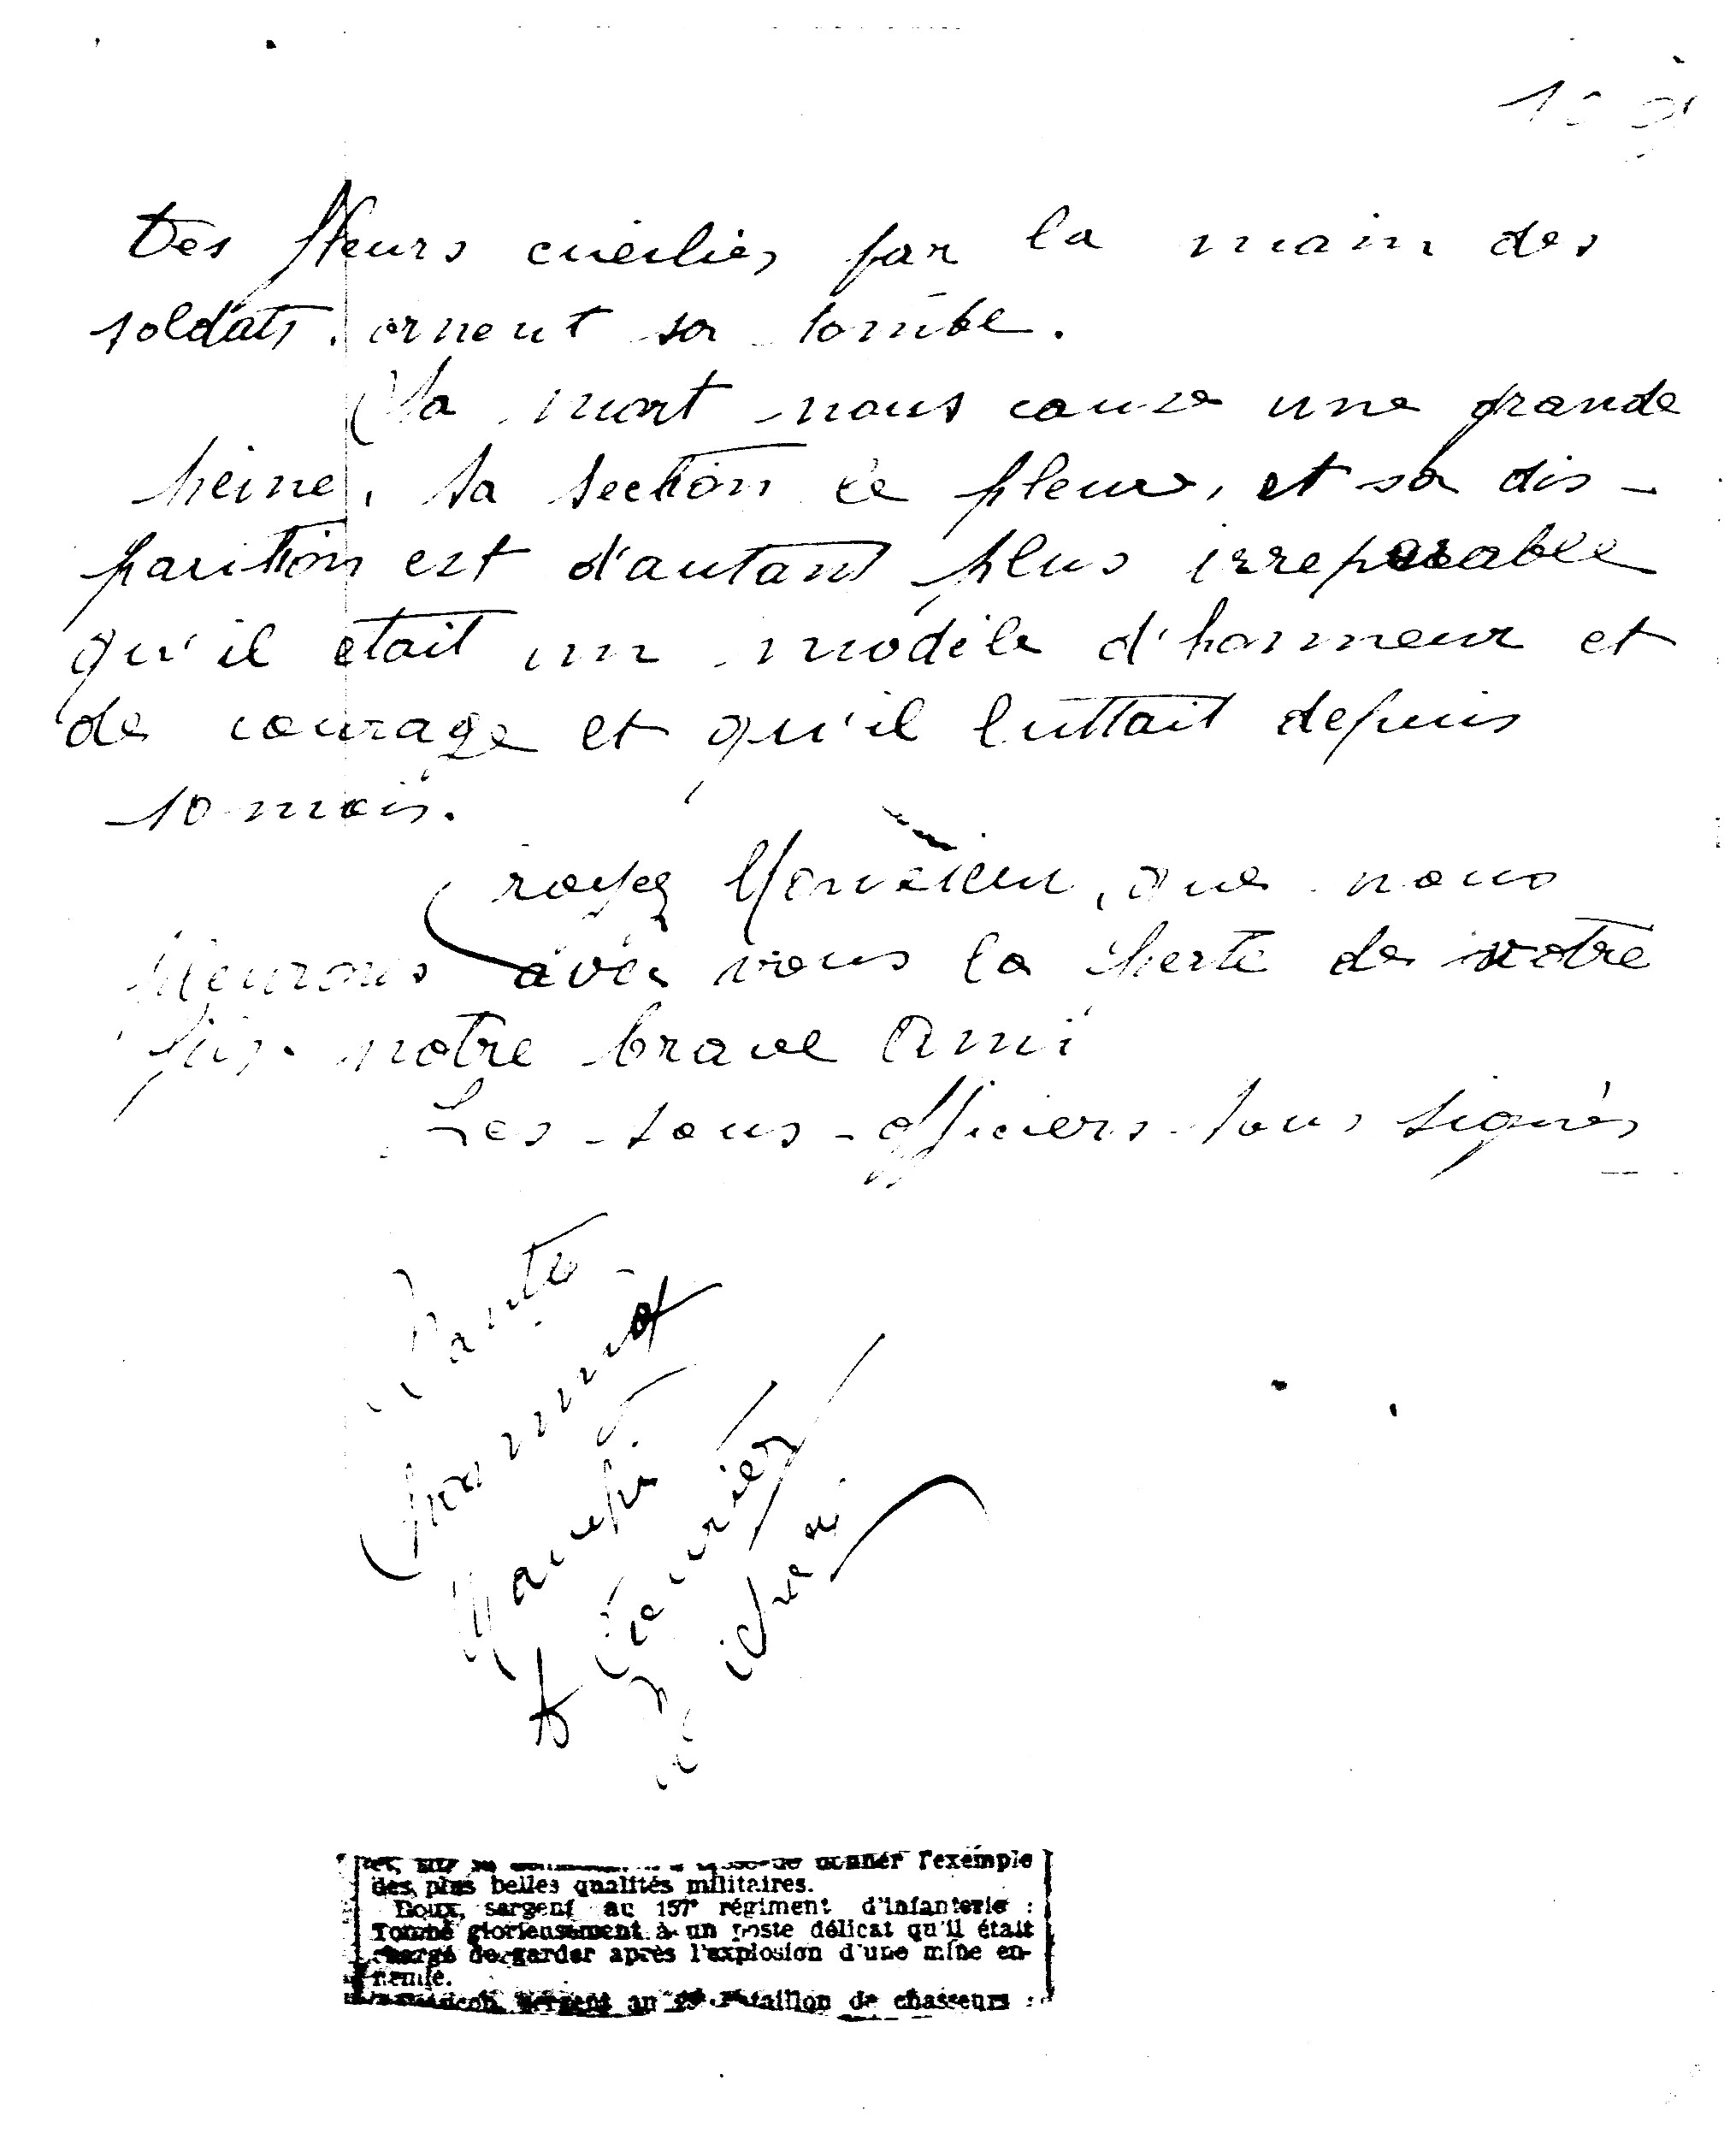 Des fleurs cueilies par la main des
soldats ornent sa tombe.
Sa mort nous cause une grande
peine, sa section le pleure, et sa dis-
parition est d'autant plus irreparable
qu'il etait un modèle d'honneur et
de courage et qu'il luttait depuis
10 mois.
Croyez Monsieur, que nous
pleurons avec vous la perte de votre
fils. notre brave Ami
Les sous-officiers sous signés
des plus belles qualités militaires.
Doux, sergent au 157e régiment d'infanterie :
Tombé glorieusement à un poste délicat qu'il était
chargé de garder après l'explosion d'une mine en-
nemie.
sergent au bataillon de chasseurs :
donner l'exemple